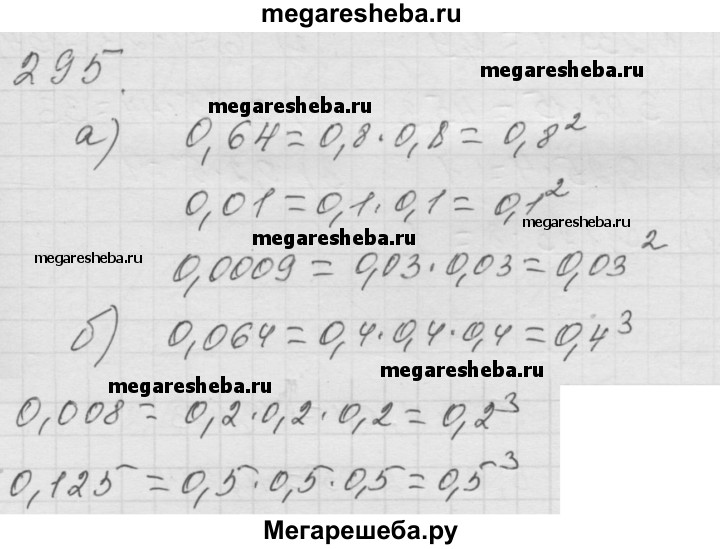 megaresheba.ru
295.
megaresheba.ru
megaresheba.ru
а) 0,64 = 0,8 · 0,8 = 0,8²
0,01 = 0,1 · 0,1 = 0,1²
megaresheba.ru
megaresheba.ru
megaresheba.ru
0,0009 = 0,03 · 0,03 = 0,03²
б) 0,064 = 0,4 · 0,4 · 0,4 = 0,4³
megaresheba.ru
megaresheba.ru
0,008 = 0,2 · 0,2 · 0,2 = 0,2³
0,125 = 0,5 · 0,5 · 0,5 = 0,5³
Мегарешеба.ру